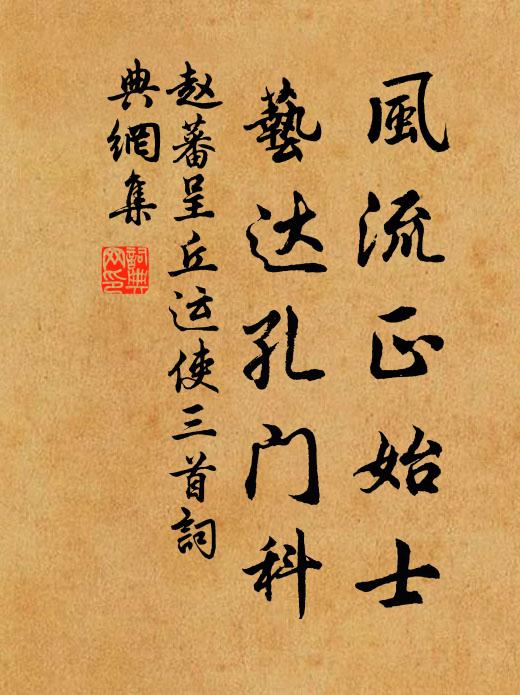 風流正始士
藝达孔门科
赵蕃呈丘运使三首詞
典網集
詞典
网印